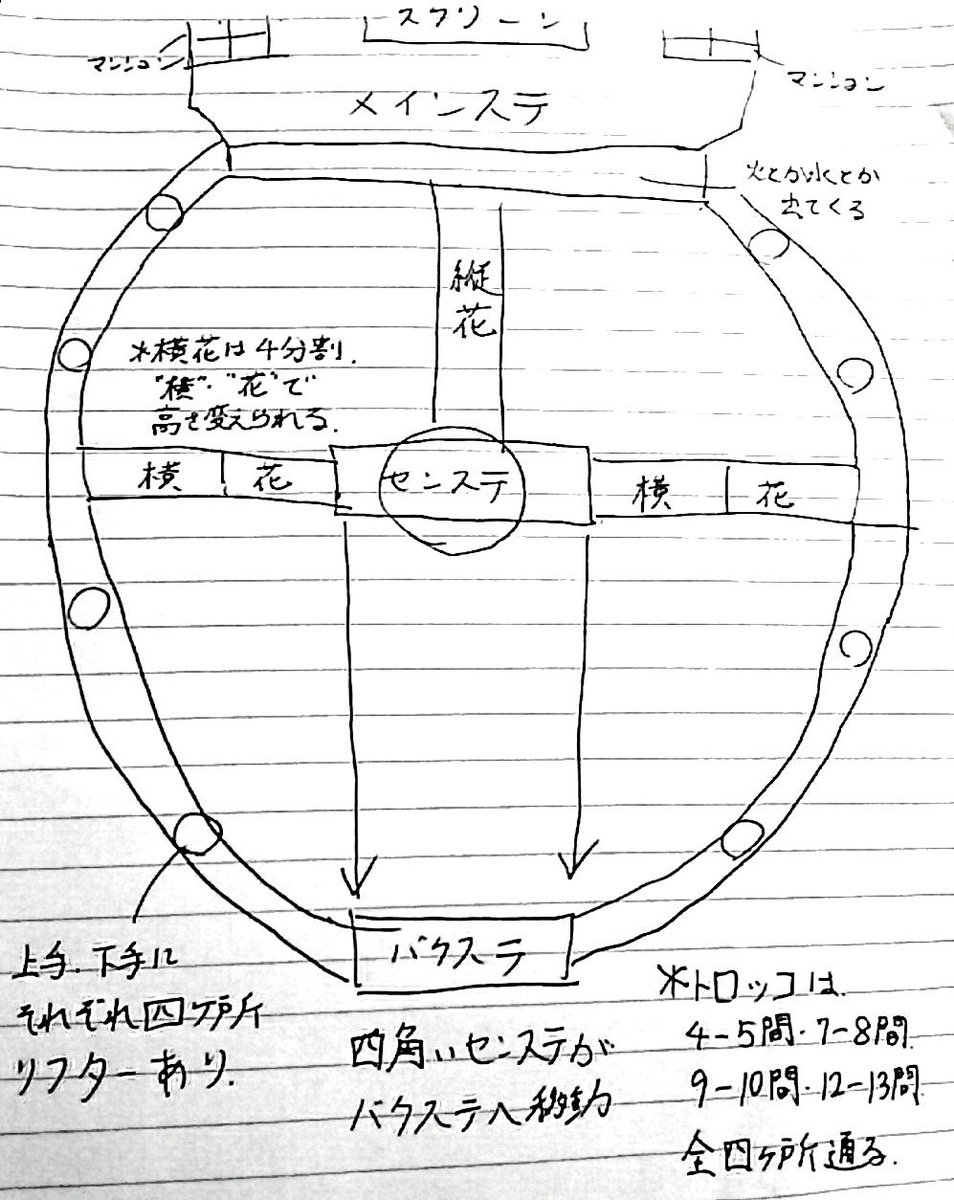 スクリーン
マンション
マンション
メインステ
火とか水とか
出てくる
縦
花
*横花は4分割.
"横"・"花"で
高さ変えられる.
横 花 センステ 横 花
バクステ
上手.下手に
それぞれ四ヶ所
リフターあり.
四角いセンステが
バクステへ移動
*トロッコは.
4-5間・7-8間.
9-10間・12-13間
全四ヶ所通る.